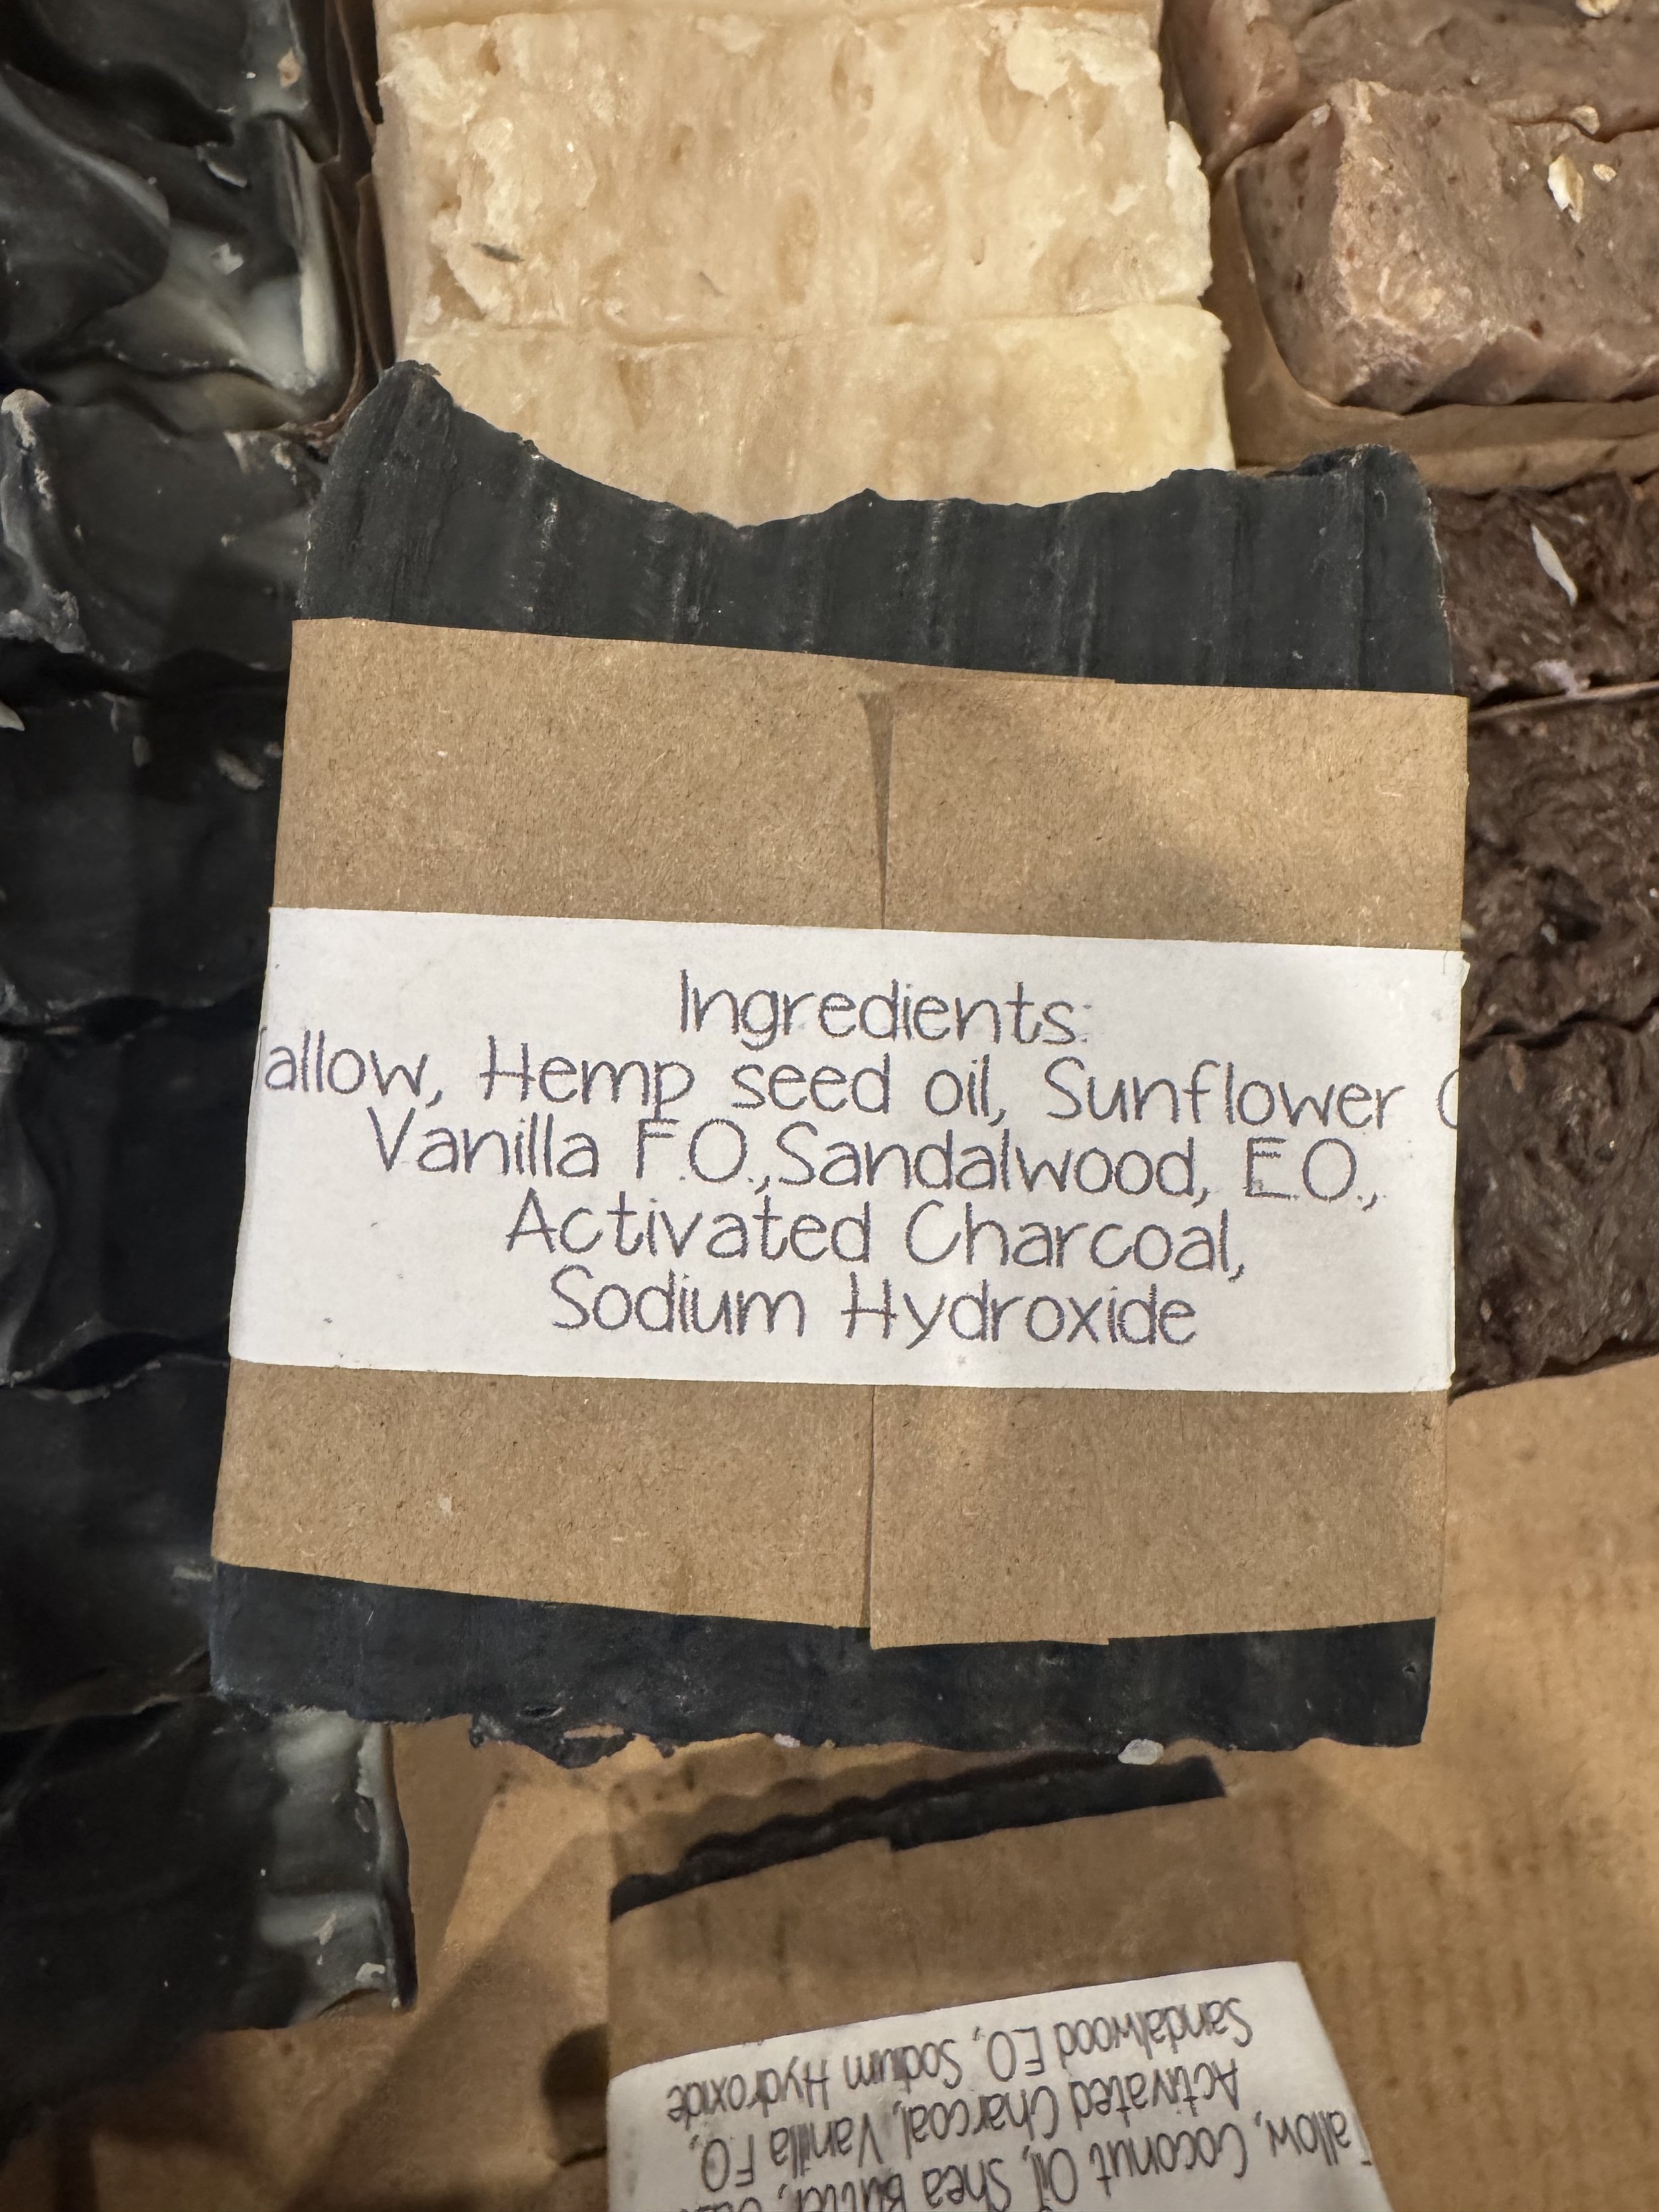 Ingredients:
Tallow, Hemp seed oil, Sunflower
Vanilla F.O.,Sandalwood, E.O.,
Activated Charcoal,
Sodium Hydroxide
Tallow, Coconut Oil, Shea Butter,
Activated Charcoal, Vanilla F.O,
Sandalwood E.O, Sodium Hydroxide